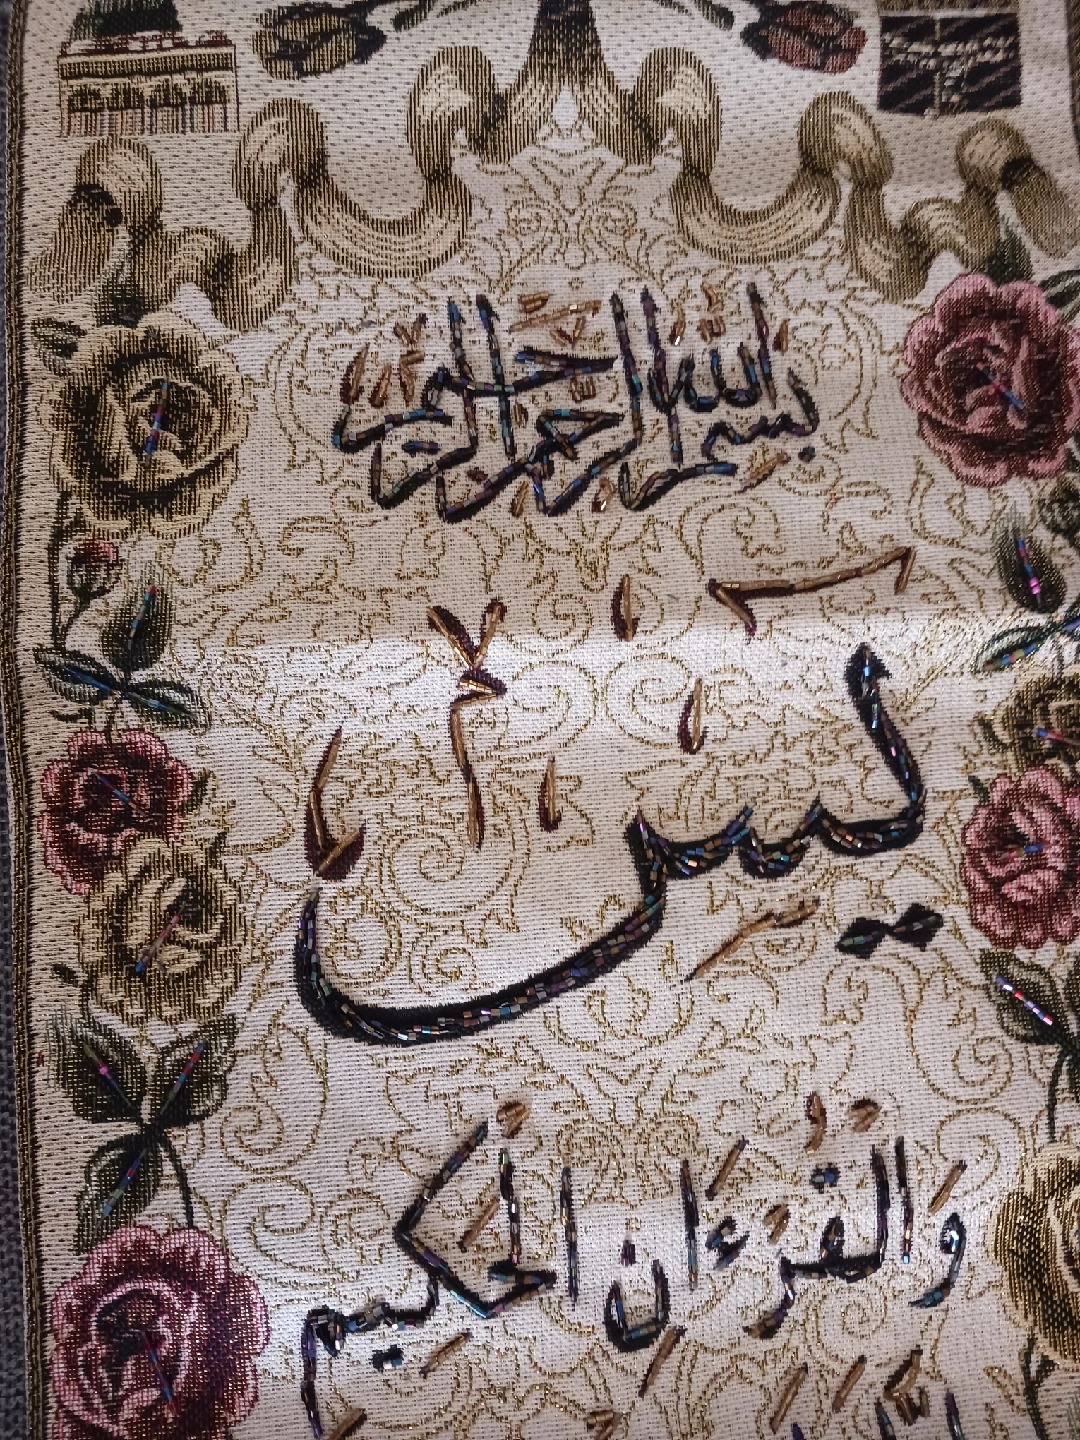 بسم الله الرحمن الرحيم
يس
وَالْقُرْءَانِ الْحَكِيمِ